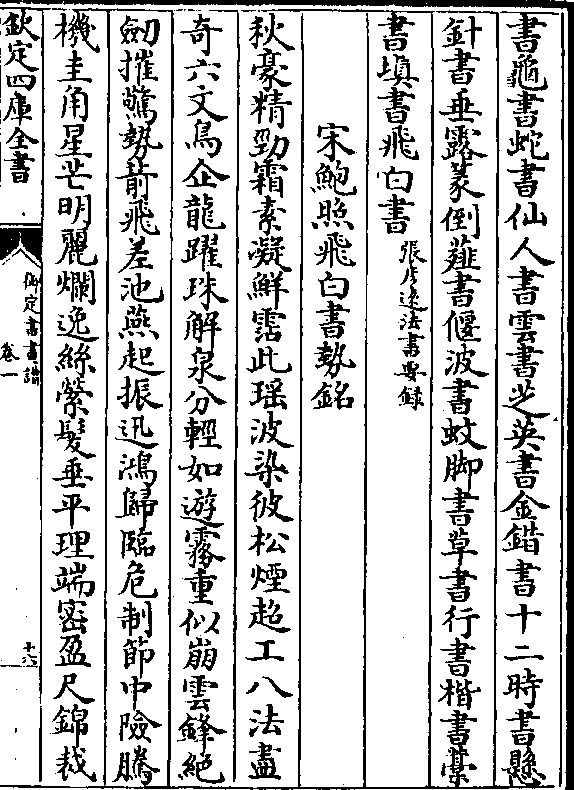 書龜書蛇書仙人書雲書芝英書金錯書十二時書懸
針書垂露篆倒薤書偃波書蚊脚書草書行書楷書藁
書塡書飛白書張彦逺法書要録
宋鮑照飛白書勢銘
秋豪精勁霜素凝鮮霑此瑶波染彼松煙超工八法盡
奇六文鳥企龍躍珠解泉分輕如遊霧重似崩雲鋒絶
劒摧驚勢箭飛差池燕起振迅鴻歸臨危制節中險騰
機圭角星芒明麗爛逸絲縈髪垂平理端宻盈尺錦裁
欽定四庫全書
御定書畫譜
卷一
十六